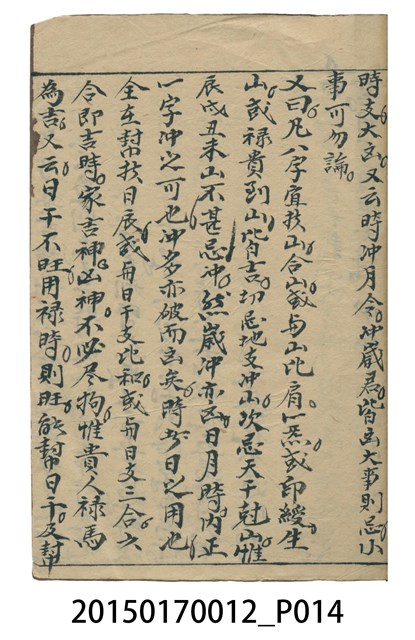 時支大凶又云時冲月令冲嵗君皆凶大事則忌小
事可勿論
又曰凡八字宜扶山合山或与山比肩一炁或印綬生
山或禄貴到山皆吉切忌地支冲山次忌天干尅山惟
辰戌丑未山不甚忌冲然嵗冲亦凶日月時內正
一字冲之可也冲多亦破而凶矣時者日之用也
全在幫扶日辰或与日干支比和或与日支三合六
合即吉時家吉神凶神不必尽拘惟貴人禄馬
為吉又云日干不旺用禄時則旺能幫日干及幫
20150170012_P014